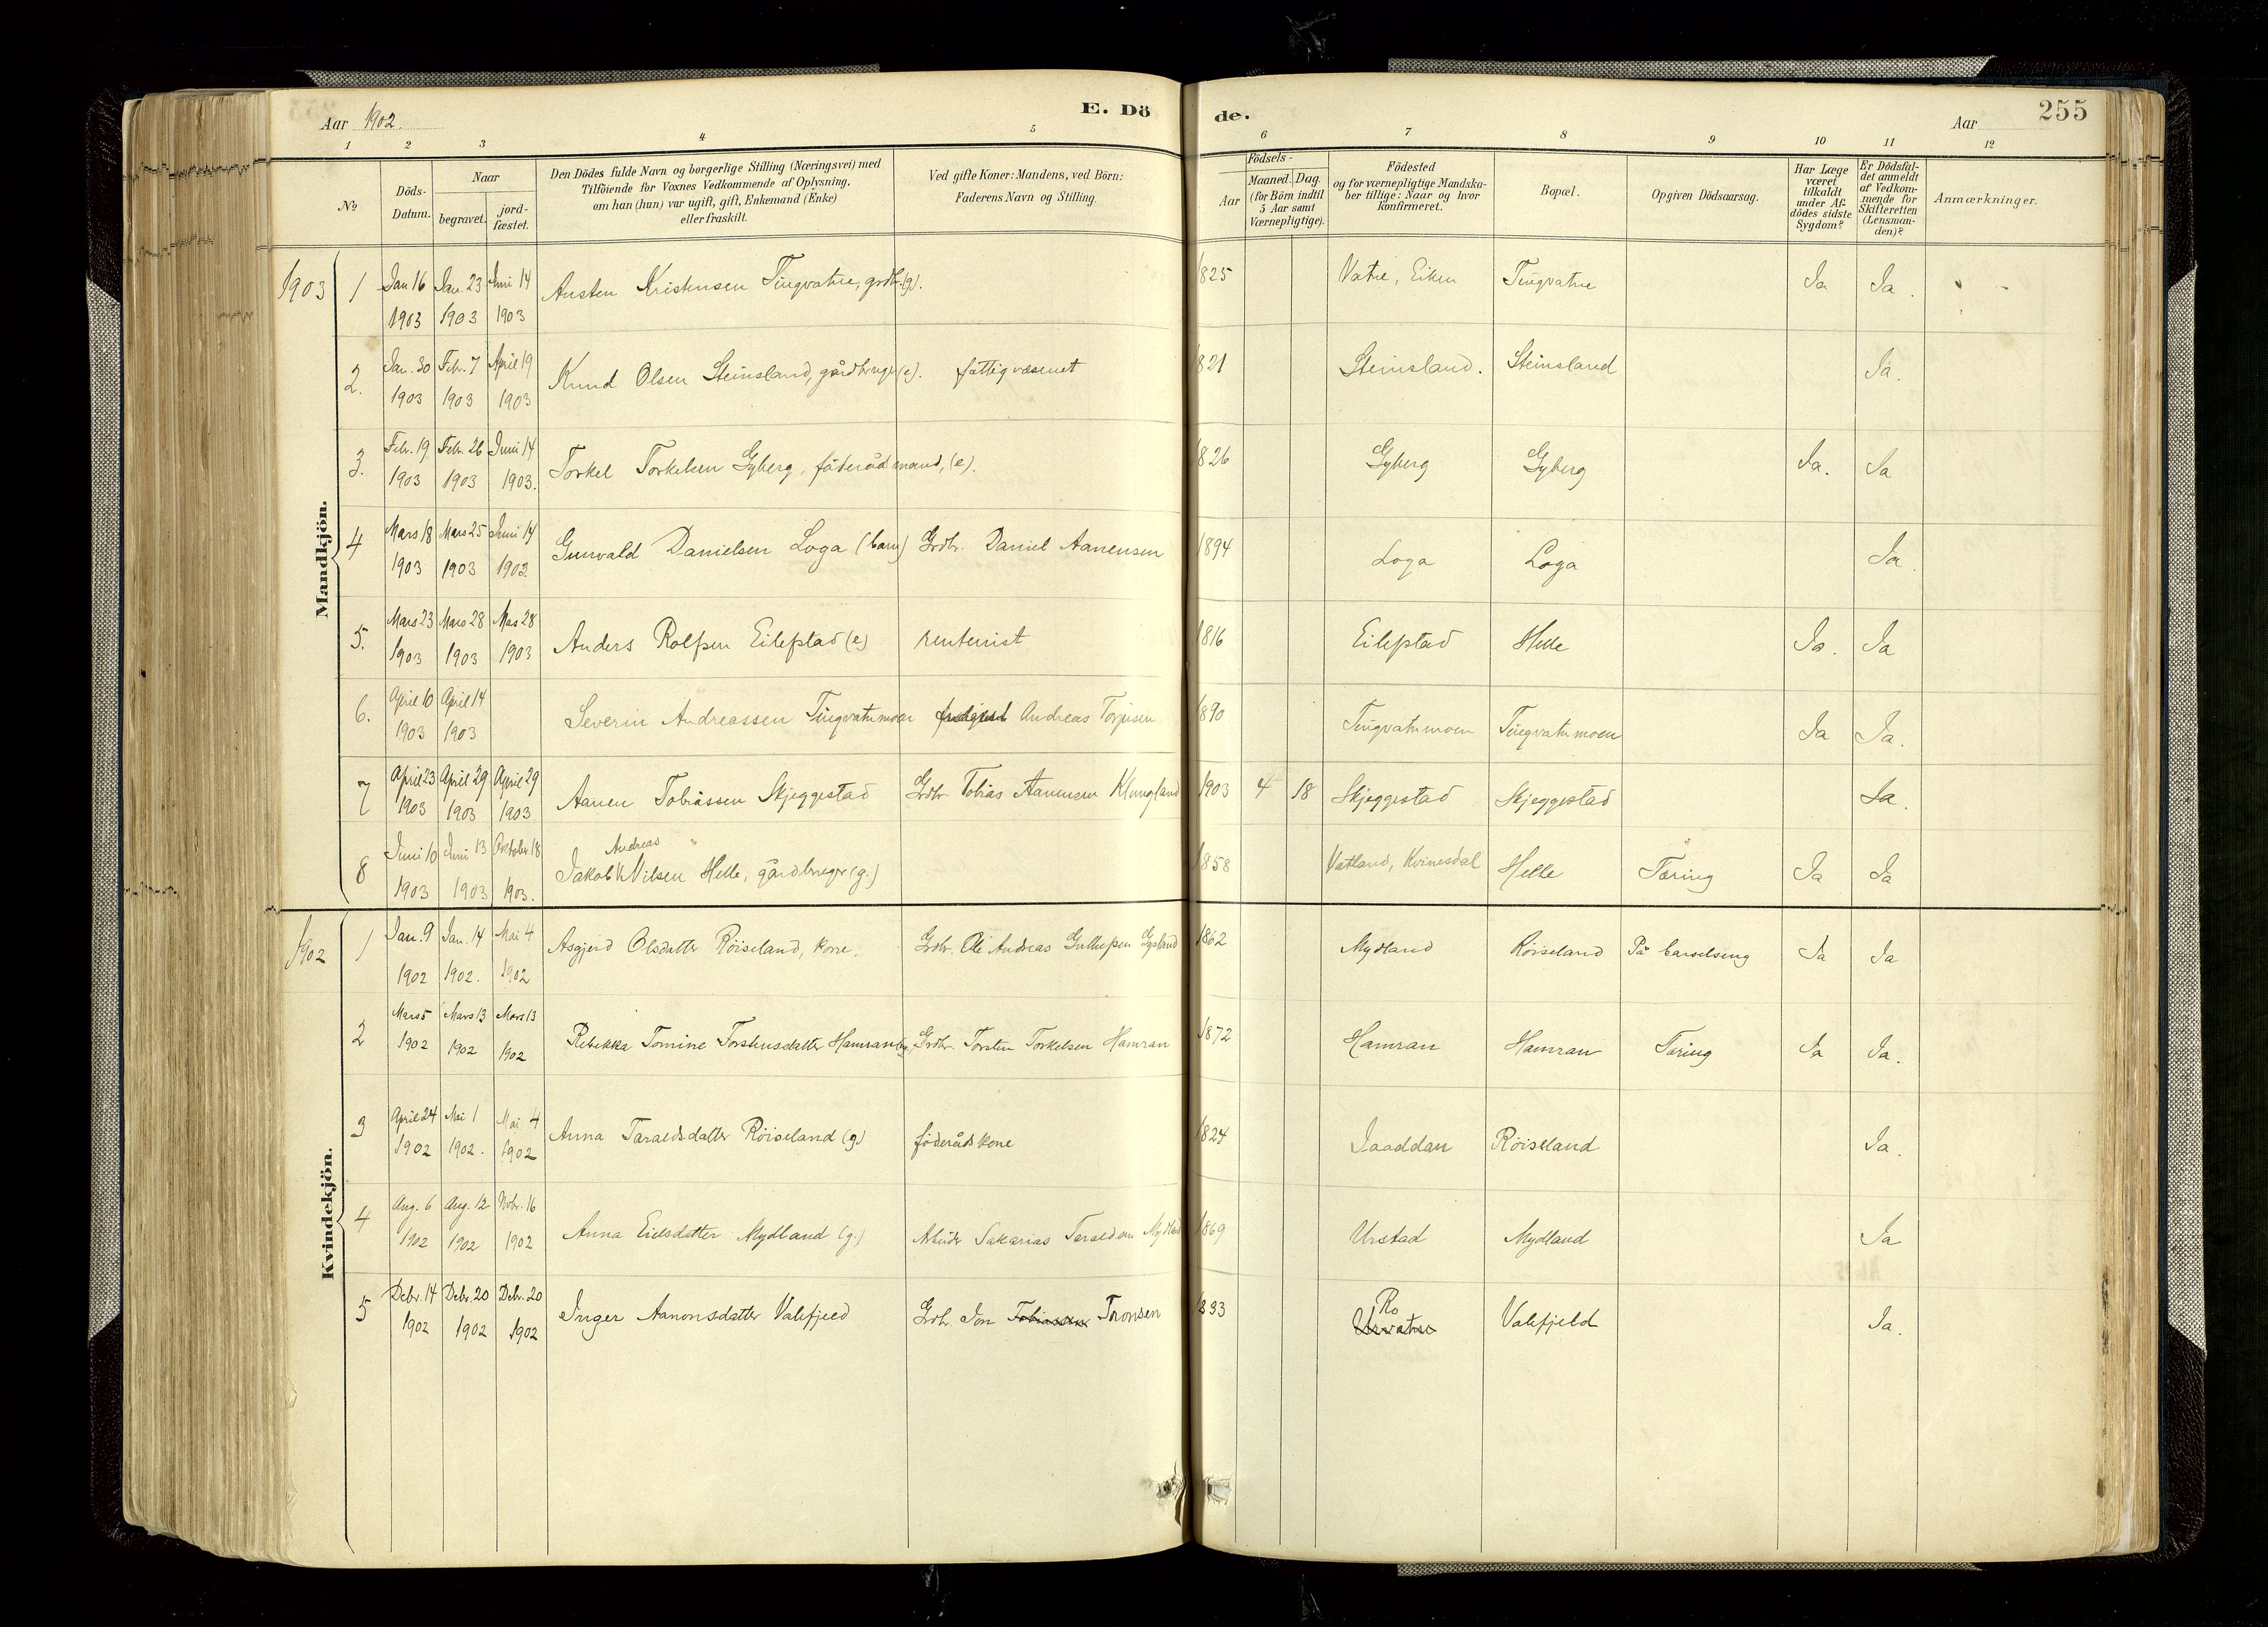 Aar 1902.
E. Dö
de.
Aar
255
1 2 3 4 5 6 7 8 9 10 11 12
No
Döds-Datum.
Naar
begravet.
jord-fæstet.
Den Dödes fulde Navn og borgerlige Stilling (Næringsvei) med
Tilföiende for Voxnes Vedkommende af Oplysning,
om han (hun) var ugift, gift, Enkemand (Enke)
eller fraskilt.
Ved gifte Koner: Mandens, ved Börn:
Faderens Navn og Stilling.
Födsels-
Aar
Maaned. Dag.
(for Börn indtil
5 Aar samt
Værnepligtige).
Födested
og for værnepligtige Mandska-
ber tillige: Naar og hvor
konfirmeret.
Bopæl.
Opgiven Dödsaarsag.
Har Læge
været
tilkaldt
under Af-
dödes sidste
Sygdom?
Er Dödsfal-
det anmeldt
af Vedkom-
mende for
Skifteretten
(Lensman-
den)?
Anmærkninger.
Mandkjön.
1903 1 Jan 16 1903 Jan. 23 1903 Juni 14 1903 Austen Kristensen Tingvatne, grdbr. (g). 1825 Vatne, Eiken Tingvatne Ja Ja.
2. Jan. 30 1903 Febr. 7 1903 April 19 1903 Knud Olsen Steinsland, gårdbruger (e). fattigvæsenet 1821 Steinsland. Steinsland Ja.
3. Febr. 19 1903 Febr. 26 1903 Juni 14 1903. Torkel Torkelsen Gyberg, föderådmand, (e). 1826 Gyberg Gyberg Ja. Ja
4 Mars 18 1903 Mars 25 1903 Juni 14 1903 Gunvald Danielsen Loga (barn) Grdbr. Daniel Aanensen 1894 Loga Loga Ja.
5. Mars 23 1903 Mars 28 1903 Mars 28 1903 Anders Rolfsen Eilefstad (e) rentenist 1816 Eilefstad Helle Ja. Ja
6. April 10 1903 April 14 1903 Severin Andreassen Tingvatnmoen Andreas Torjusen 1890 Tingvatnmoen Tingvatnmoen Ja Ja.
7 April 23 1903 April 29 1903 April 29 1903 Aanen Tobiassen Skjeggestad Grdbr. Tobias Aanensen Klungland 1903 4 18 Skjeggestad Skjeggestad Ja.
8 Juni 10 1903 Juni 13 1903 Oktober 18 1903. Jakob Andreas Nilsen Helle, gårdbruger (g.) 1858 Vatland, Kvinesdal Helle Tæring Ja Ja
Kvindekjön.
1902 1 Jan. 9 1902 Jan. 14 1902. Mai 4 1902 Asgjerd Olsdatter Röiseland, kone. Grdbr. Ole Andreas Gysland 1862 Mydland Röiseland På barselseng Ja Ja
2 Mars 5 1902 Mars 13 1902 Mars 13 1902 Rebekka Tomine Torstensdatter Hamran Grdbr. Torsten Torkelsen Hamran 1872 Hamran Hamran Tæring Ja Ja.
3 April 24 1902 Mai 1 1902. Mai 4 1902 Anna Taraldsdatter Röiseland (g) föderådskone 1824 Röiseland Ja.
4 Aug. 6 1902 Aug. 12 1902 Nobr. 16 1902 Anna Eilsdatter Mydland (g.) Arbeider Sakarias Taraldsen Mydland 1869 Urstad Mydland Ja
5 Debr. 14 1902 Debr. 20 1902 Debr. 20 1902 Inger Aanonsdatter Valefjeld Grdbr. Jon Tobiassen Tronsen 1833 Urvatne Ro Valefjeld Ja.